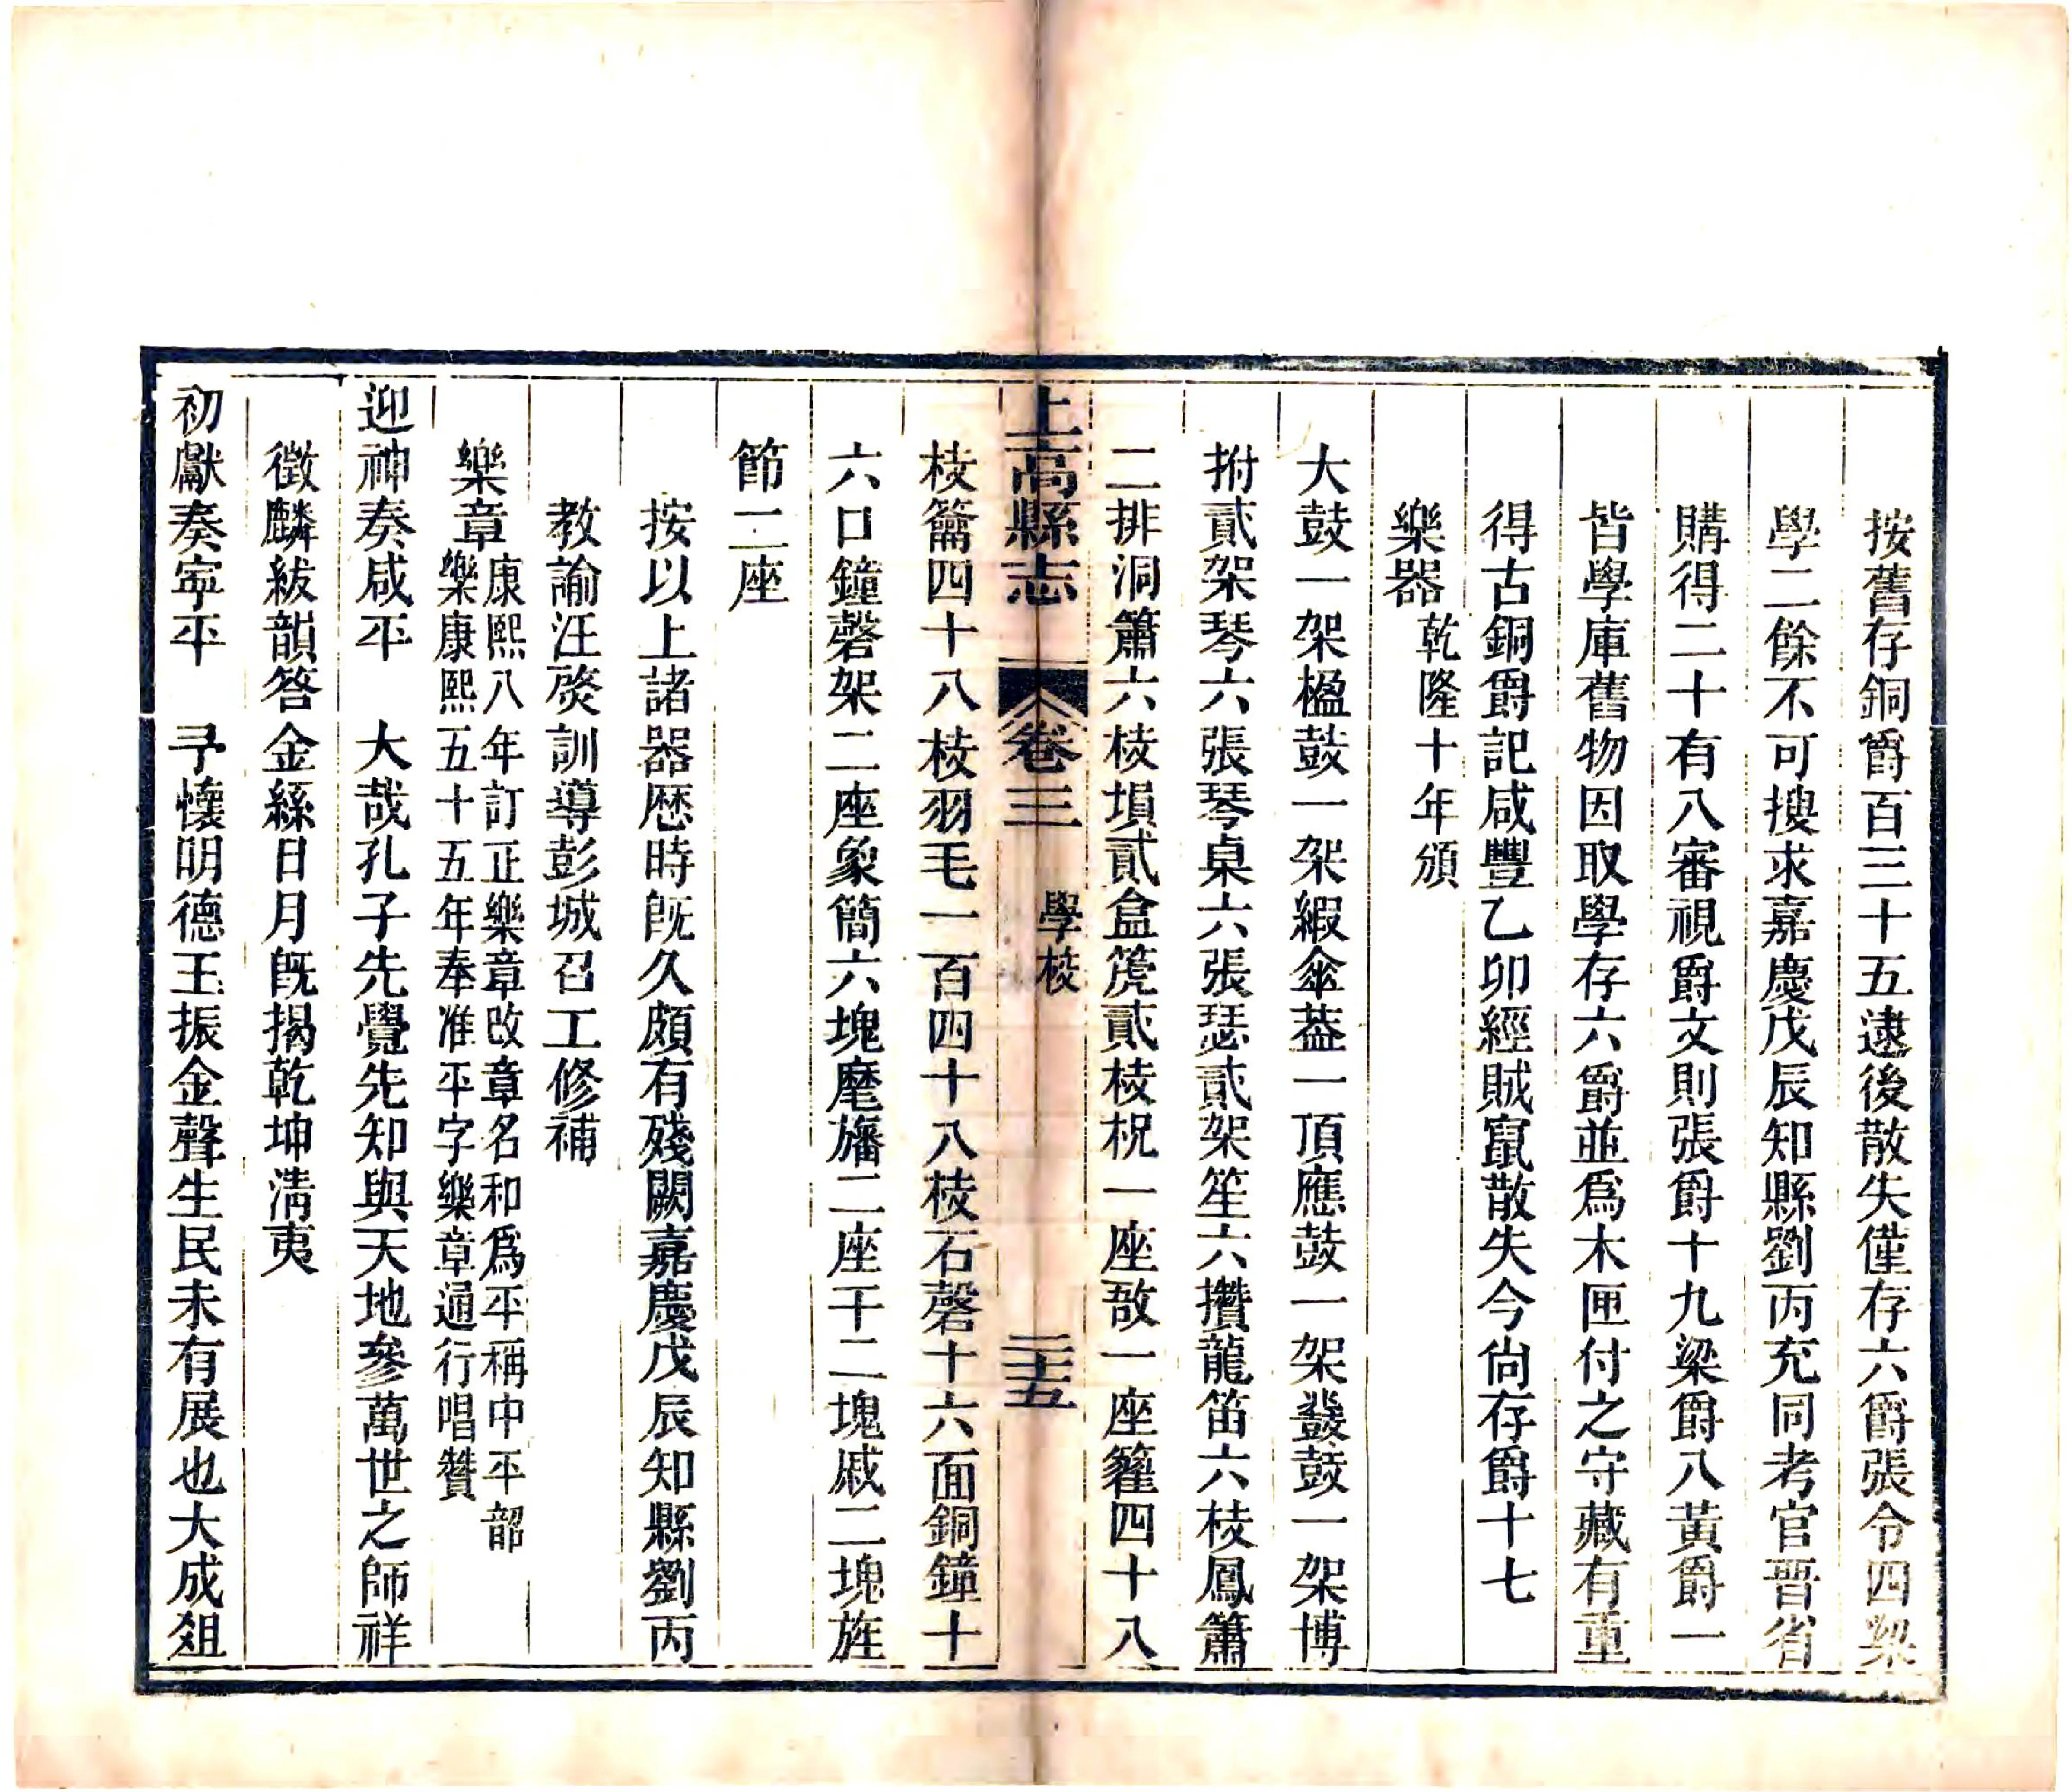 按舊存銅爵百三十五逮後散失僅存六爵張令四梁
學二餘不可搜求嘉慶戊辰知縣劉丙充同考官晋省
購得二十有八審視爵文則張爵十九梁爵八黃爵一
皆學庫舊物因取學存六爵並爲木匣付之守藏有重
得古銅爵記咸豐乙卯經賊竄散失今尙存爵十七
樂器乾隆十年頒
大鼓一架楹鼓一架緞傘葢一頂應鼓一架鼗鼓一架博
拊貳架琴六張琴桌六張瑟貳架笙六攢龍笛六枝鳳簫
二排洞簫六枝塤貳盒箎貳枝柷一座敔一座籗四十八
上高縣志
卷三
學校
二十五
枝籥四十八枝羽毛一百四十八枝石磬十六面銅鐘十
六口鐘磬架二座象簡六塊麾旛二座干二塊戚二塊旌
節二座
按以上諸器歷時旣久頗有殘闕嘉慶戊辰知縣劉丙
教諭汪焱訓導彭城召工修補
樂章康熙八年訂正樂章改章名和爲平稱中平韶
樂康熙五十五年奉准平字樂章通行唱贊
迎神奏咸平　大哉孔子先覺先知與天地參萬世之師祥
徵麟紱韻答金絲日月旣揭乾坤淸夷
初獻奏寧平　予懷明德玉振金聲生民未有展也大成俎